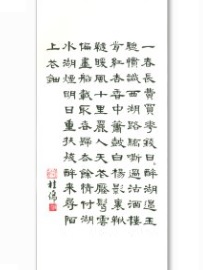 一春長費買花錢日日醉湖邊玉
驄慣識西湖路驕嘶過沽酒樓
前紅杏香中簫鼓綠楊影裏鞦
韆暖風十里麗人天花壓鬢雲
偏畫船載取春歸去餘情付湖
水湖煙明日重扶殘醉來尋陌
上花鈿